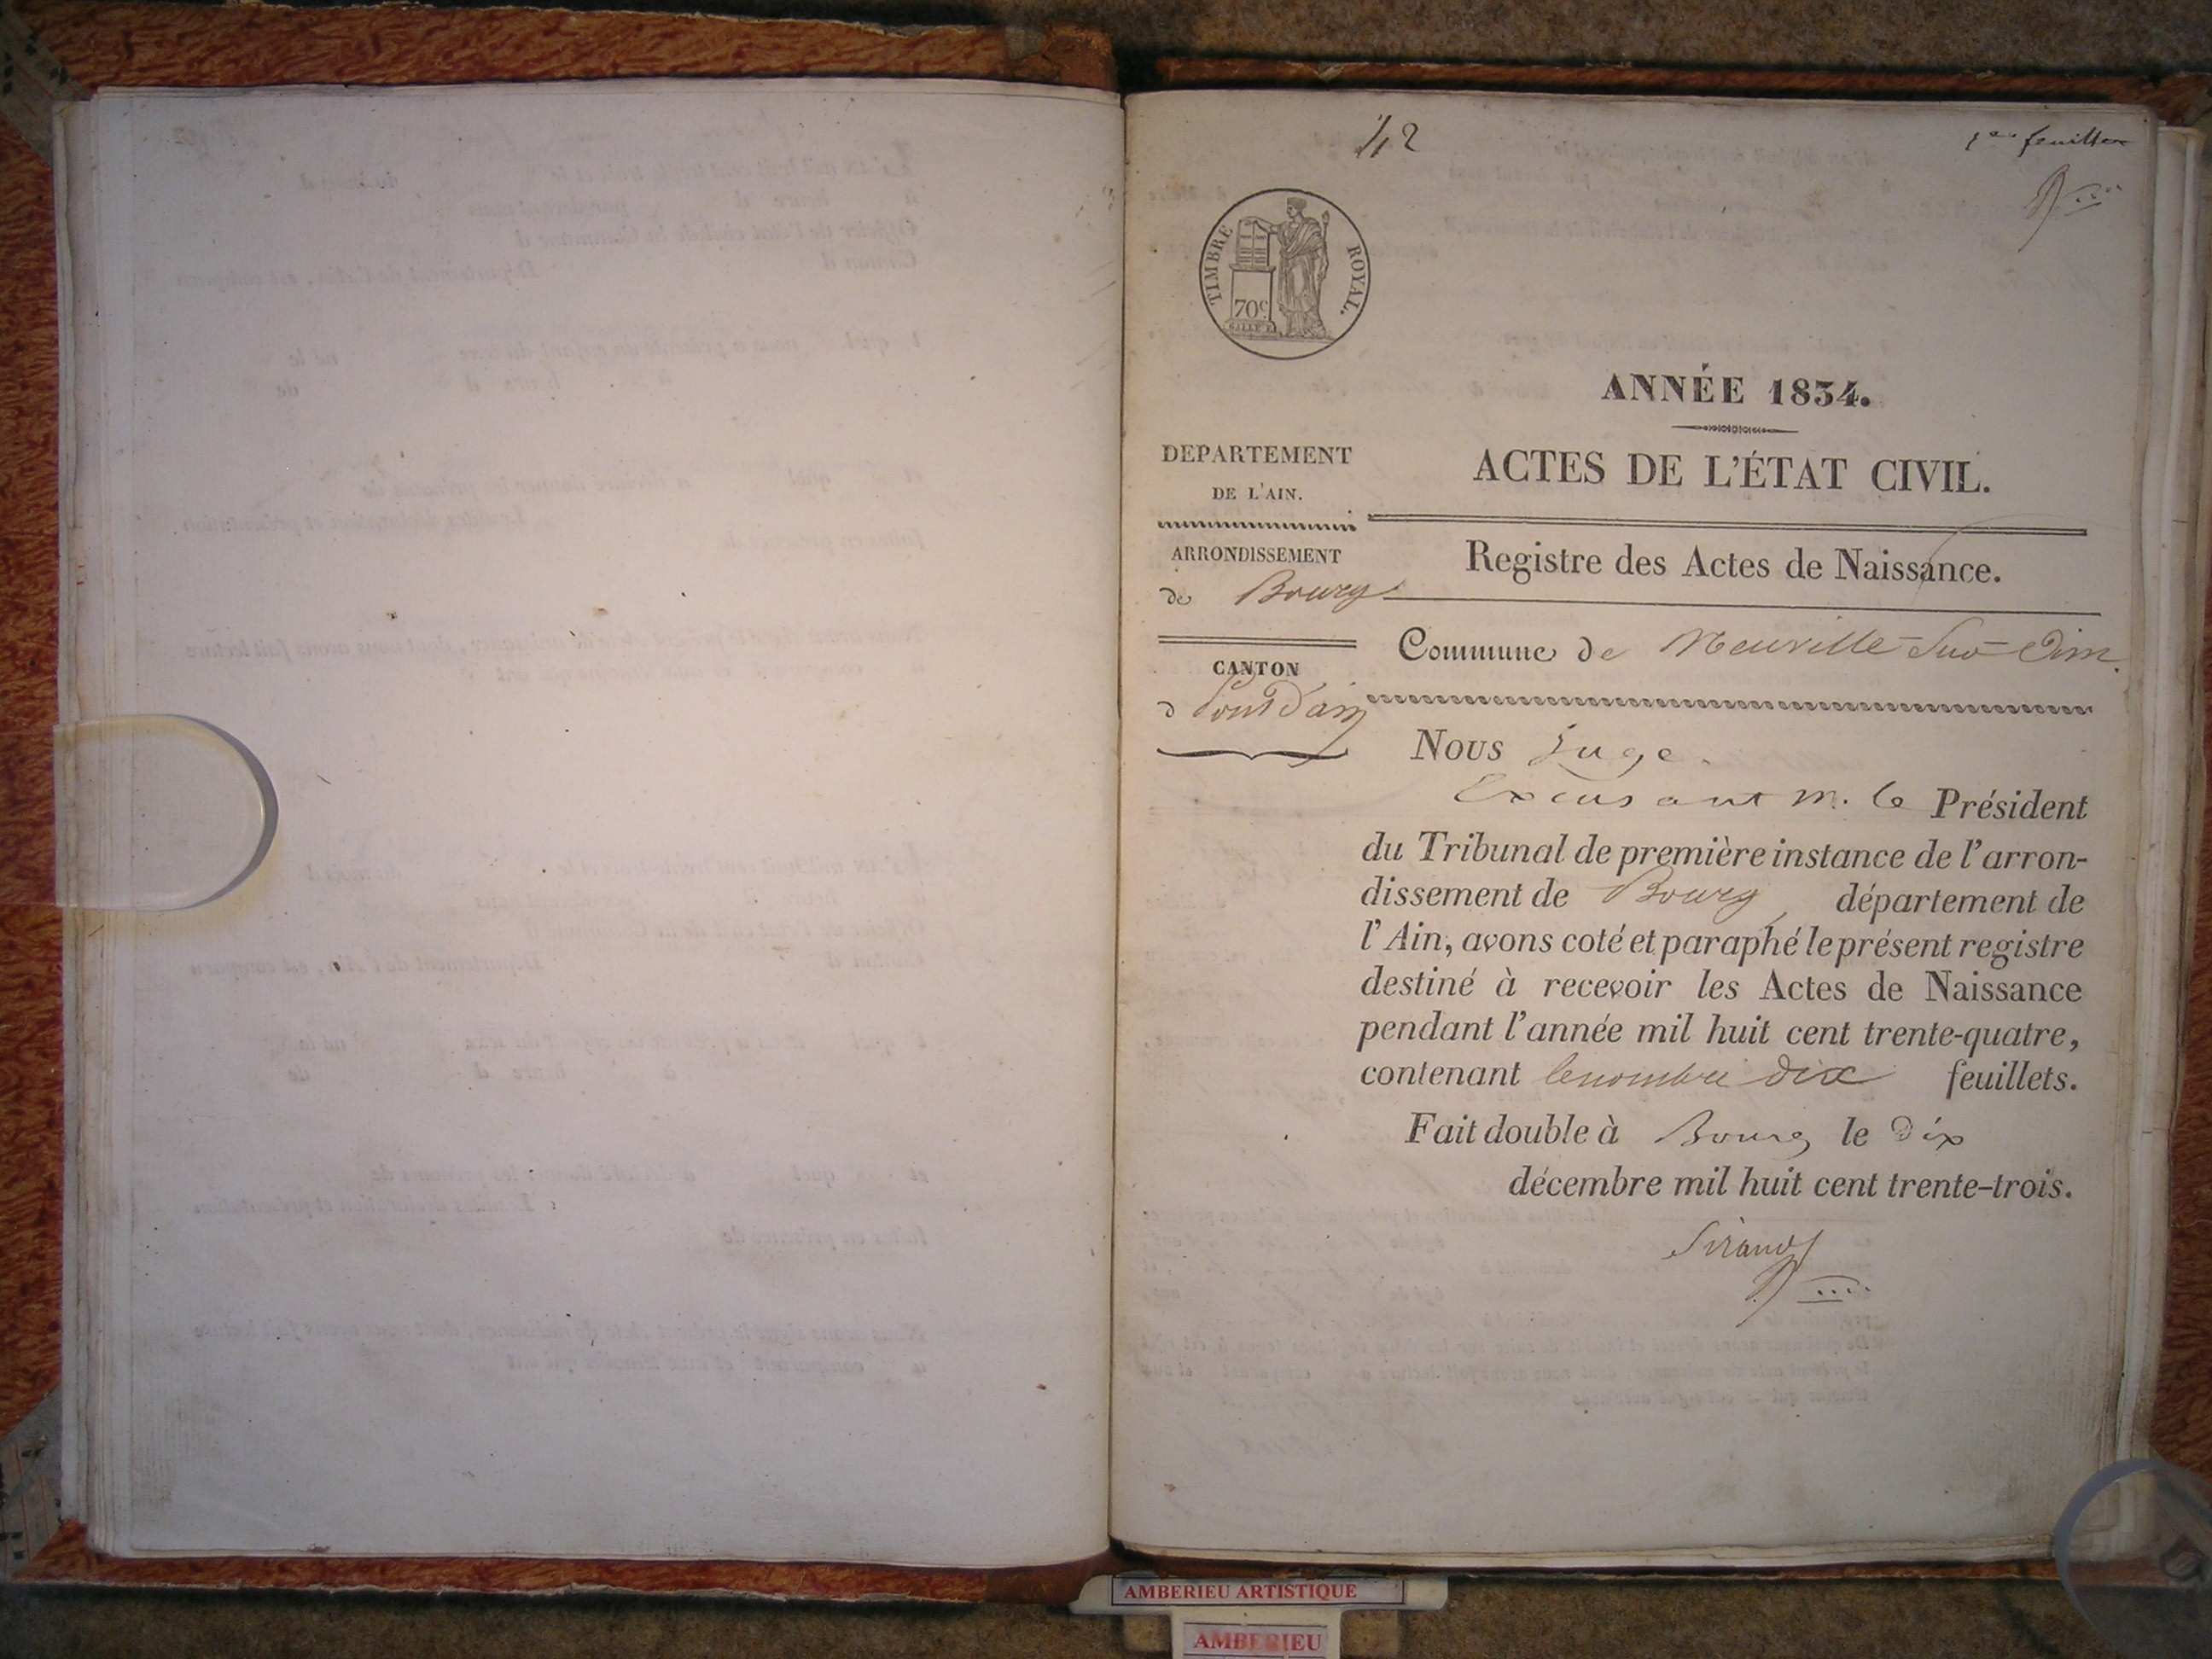 42
1er feuillet
TIMBRE ROYAL.
70c
ANNÉE 1834.
DEPARTEMENT
DE L'AIN.
ACTES DE L'ÉTAT CIVIL.
ARRONDISSEMENT
de Bourg
Registre des Actes de Naissance.
CANTON
d Pont d'ain
Commune de Neuville-Sur-Ain
Nous Juge
Excusant M. le Président
du Tribunal de première instance de l'arron-
dissement de Bourg, département de
l'Ain, avons coté et paraphé le présent registre
destiné à recevoir les Actes de Naissance
pendant l'année mil huit cent trente-quatre,
contenant le nombre dix feuillets.
Fait double à Bourg le dix
décembre mil huit cent trente-trois.
Sirand
AMBERIEU ARTISTIQUE
AMBERIEU